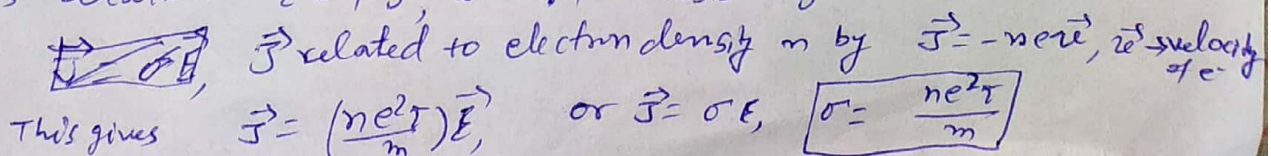 J⃗ related to electron density n by J⃗ = -neu⃗, u⃗ → velocity of e⁻
This gives J⃗ = (ne²τ/m)E⃗, or J⃗ = σE, σ = ne²τ/m